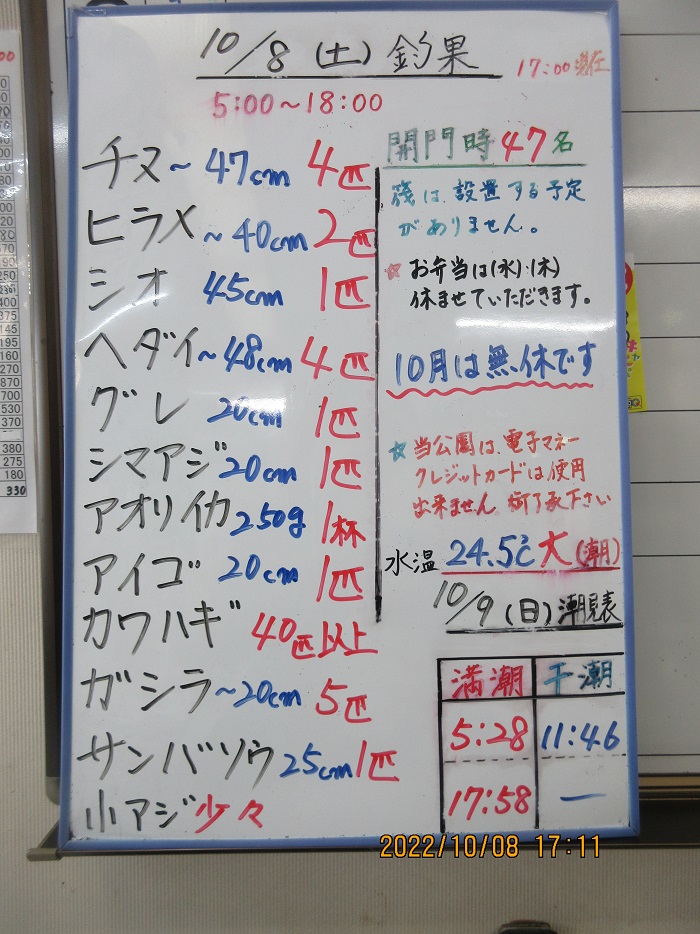 10/8(土)釣果
17:00現在
5:00~18:00
チヌ~47cm 4匹
ヒラメ~40cm 2匹
シオ 45cm 1匹
ヘダイ~48cm 4匹
グレ 20cm 1匹
シマアジ 20cm 1匹
アオリイカ 250g 1杯
アイゴ 20cm 1匹
カワハギ 40匹以上
ガシラ~20cm 5匹
サンバソウ 25cm 1匹
小アジ少々
開門時47名
筏は、設置する予定
がありません。
☆お弁当は(水)・(木)
休ませていただきます。
10月は無休です
☆当公園は、電子マネー
クレジットカードは使用
出来ません。御了承下さい
水温 24.5℃ 大(潮)
10/9(日)潮見表
満潮 干潮
5:28 11:46
17:58 ー
2022/10/08 17:11
380
275
180
330